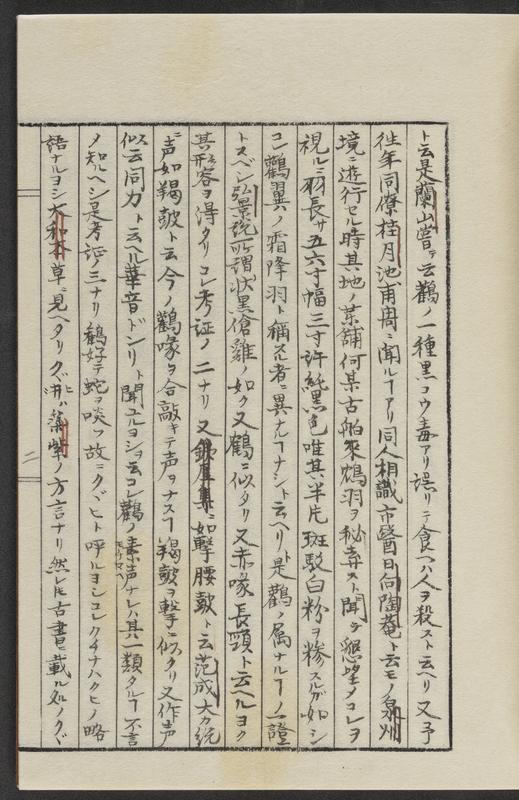 ト云是蘭山嘗テ云鸛ノ一種黒コウ毒アリ誤リテ食ヘハ人ヲ殺スト云ヘリ又予
往年同僚桂月池甫周ニ聞ルヿアリ同人相識市醫日向陶菴ト云モノ泉州
境ニ遊行セル時其地ノ葉舗何某古舶來鴆羽ヲ秘弆スト聞テ懇望ノコレヲ
視ルニ羽長サ五六寸幅三寸許純黒色唯其半片斑駁白粉ヲ糝スルガ如シ
コレ鸛翼ノ霜降羽ト稱スル者ニ異ナルヿナシト云ヘリト是鸛ノ属ナルヿノ一證
トスベシ弘景説所謂状黒傖雞ノ如ク又鶴ニ似タリ又赤喙長頸ト云ヘルヨク
其形容ヲ得タリコレ考証ノ二ナリ又如擊腰鼓ト云范成大カ説
ニ声如羯鼓ト云今ノ鸛喙ヲ合敲キテ声ヲナスヿ羯鼓ヲ擊ニ似タリ又作声
似云同力ト云ヘル華音ドンリト聞ユルヨシヲ云コレ鸛ノ素声ナレハ其一類タルヿ不言
ノ知ルヘシ是考証ノ三ナリ鶴好テ蛇ヲ啖フ故ニクヾヒト呼ルヨシコレクチナハクヒノ略
語ナルヨシ大和本草ニ見ヘタリクヾヒハ築紫ノ方言ナリ然レ𪜈古書ニ載ル処ノクヾ
二